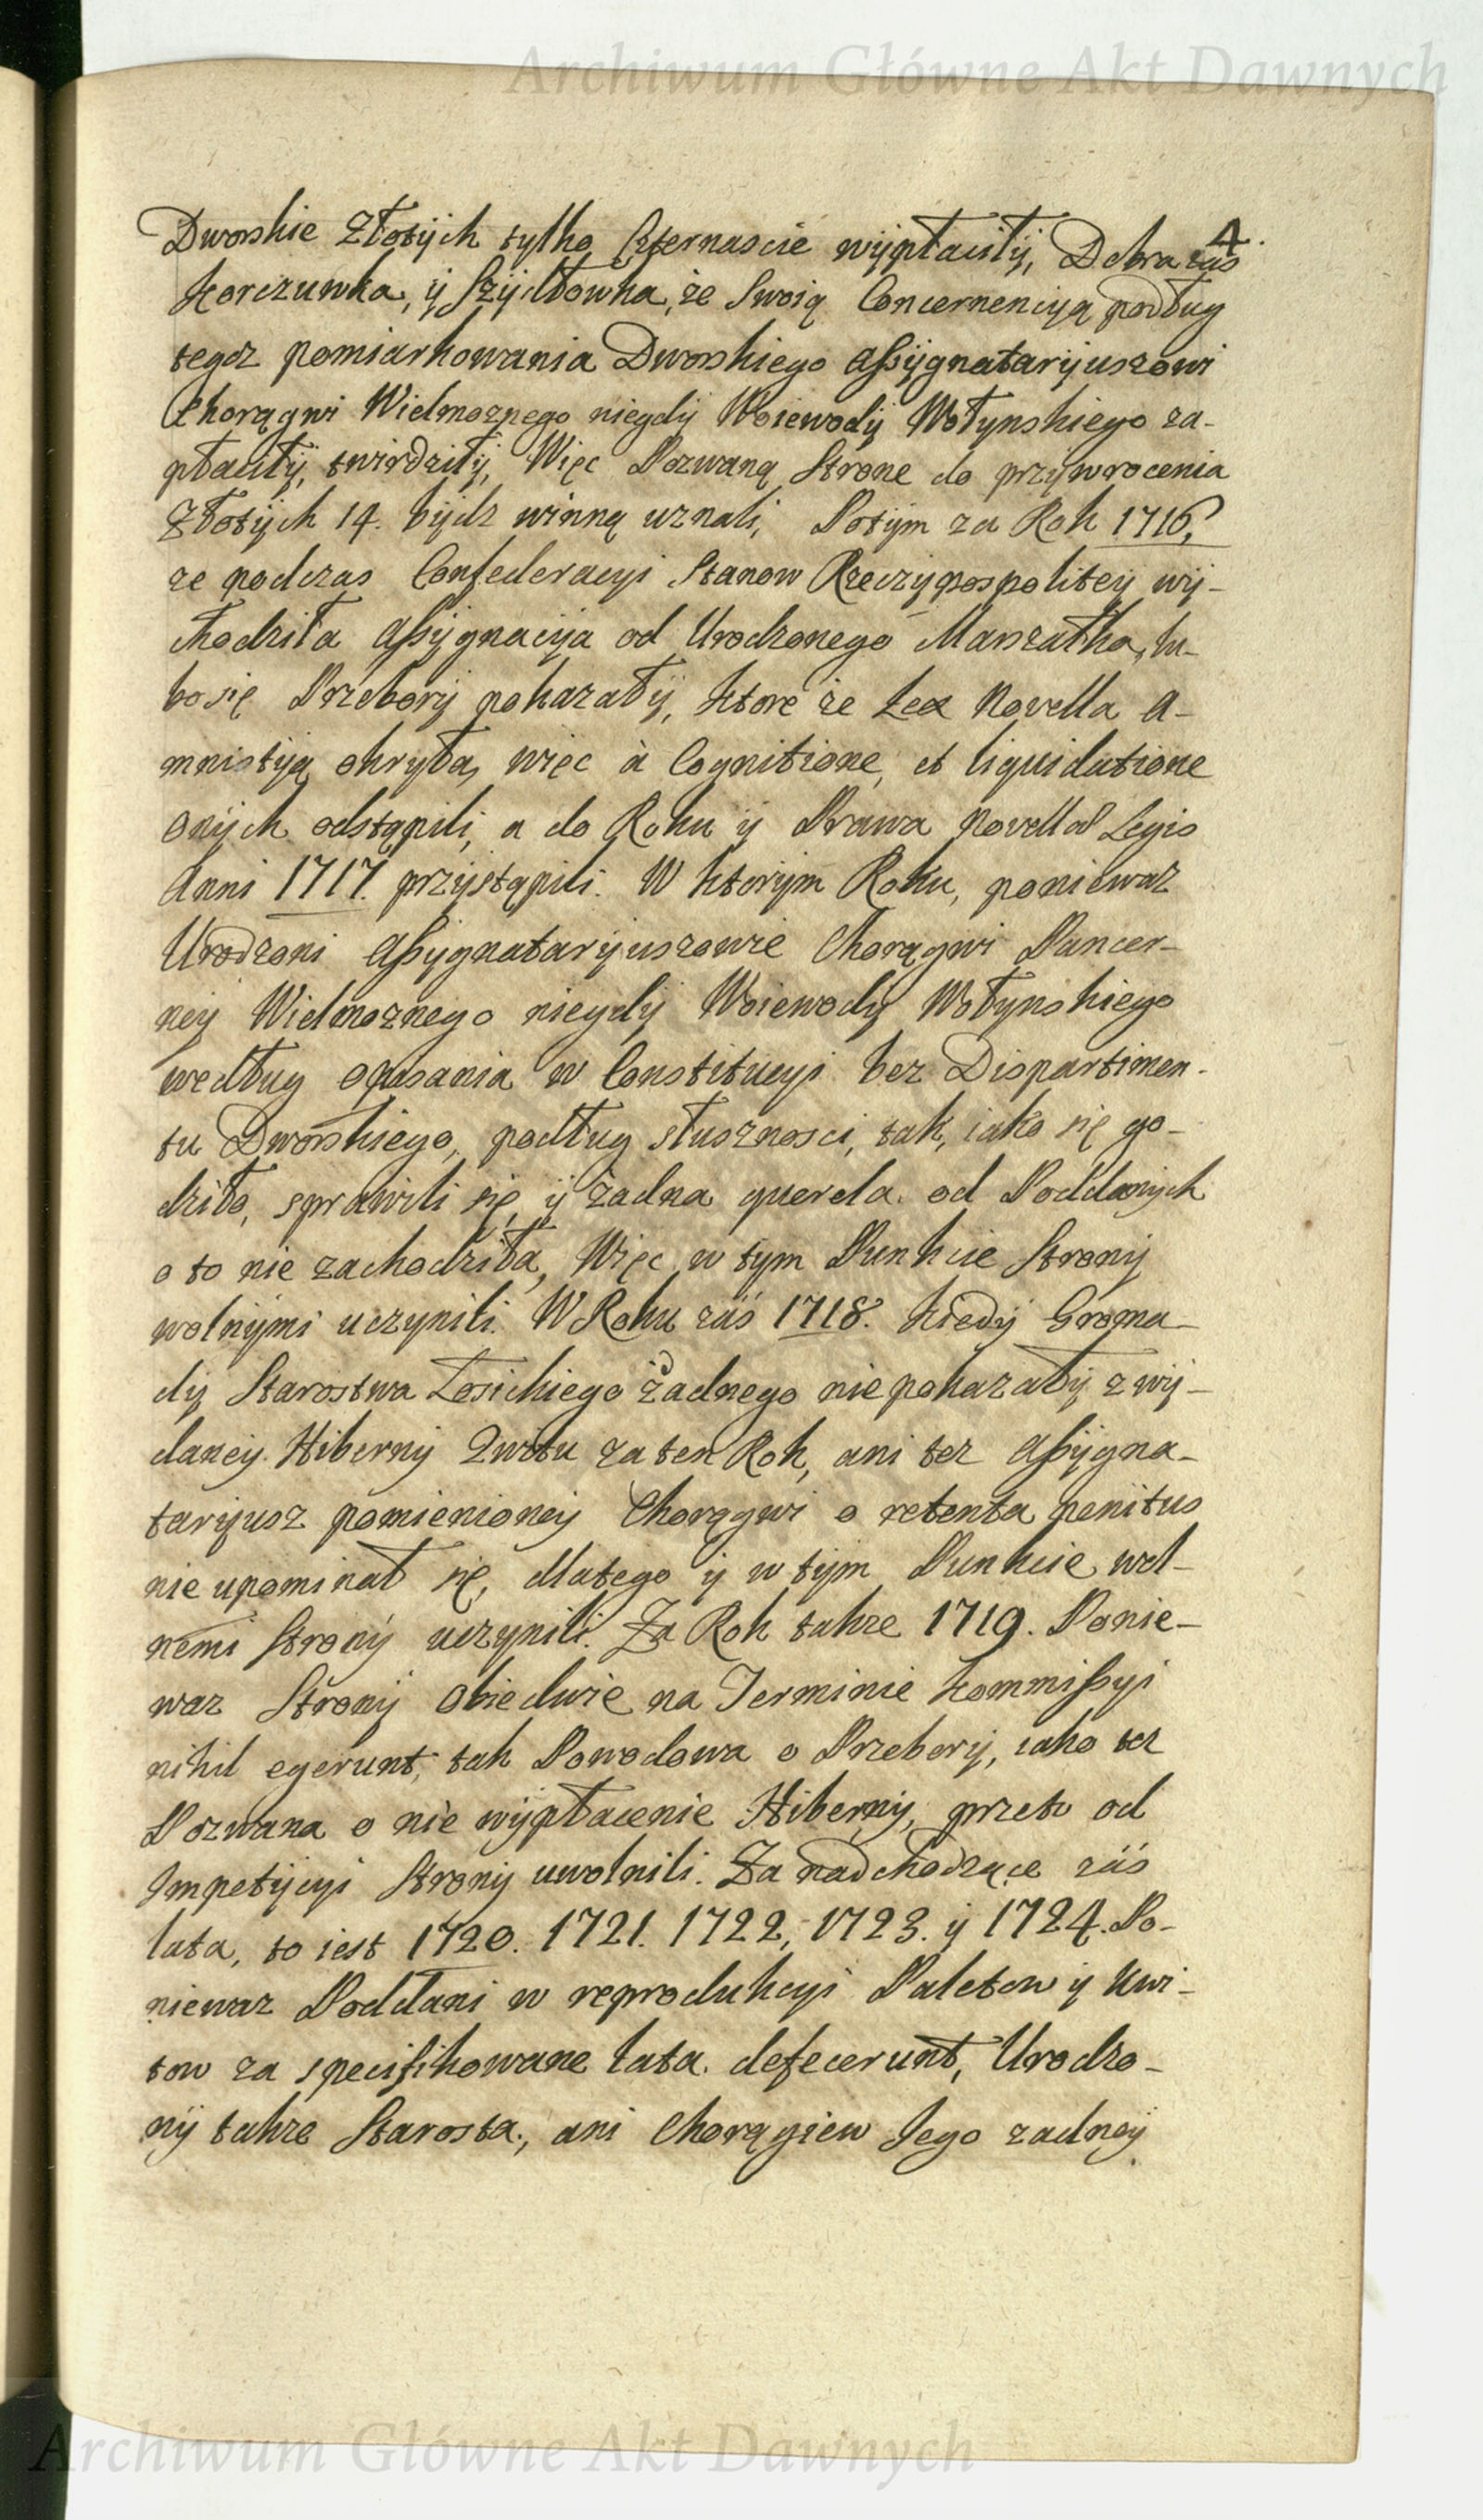 Archiwum Główne Akt Dawnych
4.
Dworskie Złotÿch tylko Czternascie wÿpłaciłÿ, Dobra zas
Korczuwka, ÿ Szÿdłowka, że Swoią Concernencÿą podług
tegoz pomiarkowania Dworskiego Assÿgnatarÿuszowi
Chorągwi Wielmoznego niegdÿ Woiewodÿ Wołynskiego za-
płaciłÿ, twirdziłÿ, Więc Pozwaną Strone do przywrocenia
Złotÿch 14. bÿdz winną uznali, Potÿm za Rok 1716,
ze podczas Confederacyi Stanow Rzeczÿpospolitey wÿ-
chodziła Assÿgnacÿa od Urodzonego Marszałka, lu-
bo się Przeborÿ pokazałÿ, ktore że Lex Novella A-
mnistÿą okryła, więc à Cognitione, et liquidatione
onÿch odstąpili, a do Roku ÿ Prawa Novellæ Legis
Anni 1717. przÿstąpili. W ktorÿm Roku, poniewaz
Urodzoni Assygnatarÿuszowie Chorągwi Pancer-
neÿ Wielmoznego niegdÿ Woiewody Wołynskiego
według opisania w Constitucyi bez Dispartimen-
tu Dworskiego, podług słusznosci, tak, iako się go-
dziło, sprawili się, ÿ żadna querela od Poddanÿch
o to nie zachodziła, Więc w tym Punkcie Stronÿ
wolnÿmi uczynili. W Roku zaś 1718. kiedÿ Groma-
dÿ Starostwa Łosickiego żadnego nie pokazałÿ z wÿ-
daneÿ Hibernÿ Qwitu za ten Rok, ani tez Assÿgna-
tarÿusz pomienioneÿ Chorągwi o retenta penitus
nie upominał się, dlatego ÿ w tÿm Punkcie wol-
nemi Stronÿ uczynili. Za Rok takze 1719. Ponie-
waz Stronÿ obiedwie na Terminie Kommissyi
nihil egerunt, tak Powodowa o Przeborÿ, iako tez
Pozwana o nie wÿpłacenie Hibernÿ, przeto od
Impetÿcyi Stronÿ uwolnili. Za nadchodzące zaś
lata, to iest 1720. 1721. 1722, 1723. ÿ 1724. Po-
niewaz Poddani w reprodukcyi Paletow ÿ Kwi-
tow za specifikowane lata defecerunt, Urodzo-
nÿ takze Starosta, ani Chorągiew Jego zadneÿ
Archiwum Główne Akt Dawnych